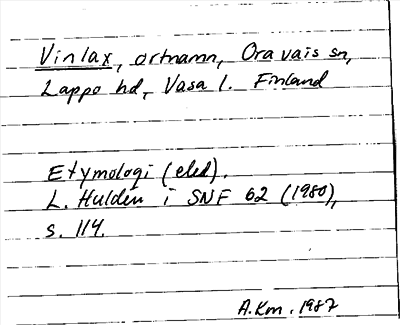 Vinlax, ortnamn, Oravais sn,
Lappo hd, Vasa l. Finland
Etymologi (eled).
L. Hulden i SNF 62 (1980),
s. 114.
A.Km. 1987